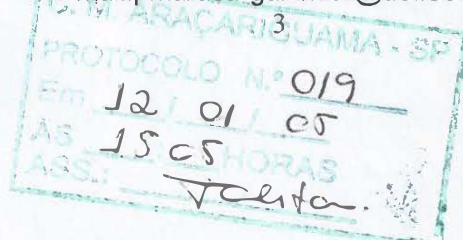 3
P. M. ARAÇARIGUAMA - SP
PROTOCOLO N.º 019
Em 12 / 01 / 05
AS 15 05 HORAS
ASS.: